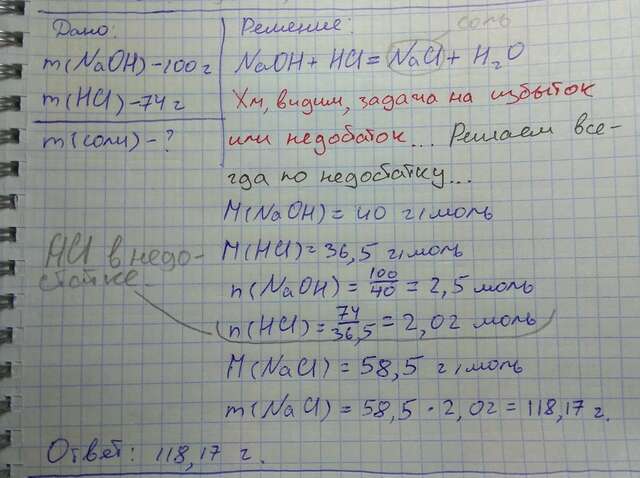 Дано:
m(NaOH) - 100 г
m(HCl) - 74 г
m(соли) - ?
Решение:
соль
NaOH + HCl = NaCl + H₂O
Хм, видим, задача на избыток
или недобаток... Решаем все-
гда по недостатку...
M(NaOH) = 40 г/моль
M(HCl) = 36,5 г/моль
n(NaOH) = 100/40 = 2,5 моль
HCl в недо-
статке.
n(HCl) = 74/36,5 = 2,02 моль
M(NaCl) = 58,5 г/моль
m(NaCl) = 58,5 · 2,02 = 118,17 г.
Ответ: 118,17 г.